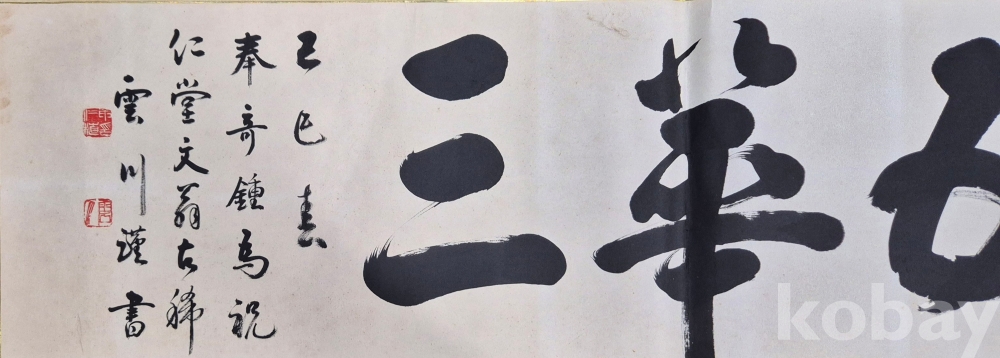 華三
己巳春
奉奇鍾為祝
仁堂文翁古稀
雲川謹書
kobay